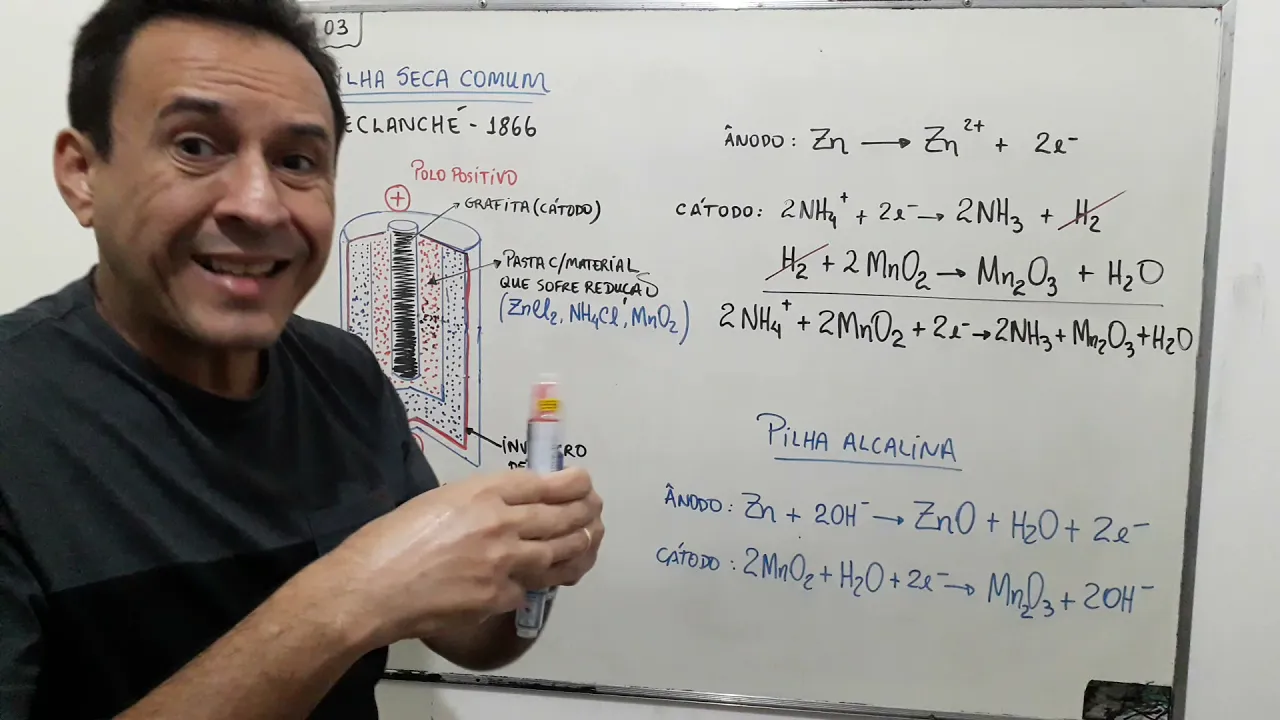 03
ILHA SECA COMUM
ECLANCHÉ - 1866
POLO POSITIVO
+
GRAFITA (CÁTODO)
PASTA C/ MATERIAL
QUE SOFRE REDUÇÃO
(ZnCl2, NH4Cl, MnO2)
ÂNODO: Zn → Zn2+ + 2e-
CÁTODO: 2NH4+ + 2e- → 2NH3 + H2
H2 + 2MnO2 → Mn2O3 + H2O
2NH4+ + 2MnO2 + 2e- → 2NH3 + Mn2O3 + H2O
PILHA ALCALINA
ÂNODO: Zn + 2OH- → ZnO + H2O + 2e-
CÁTODO: 2MnO2 + H2O + 2e- → Mn2O3 + 2OH-